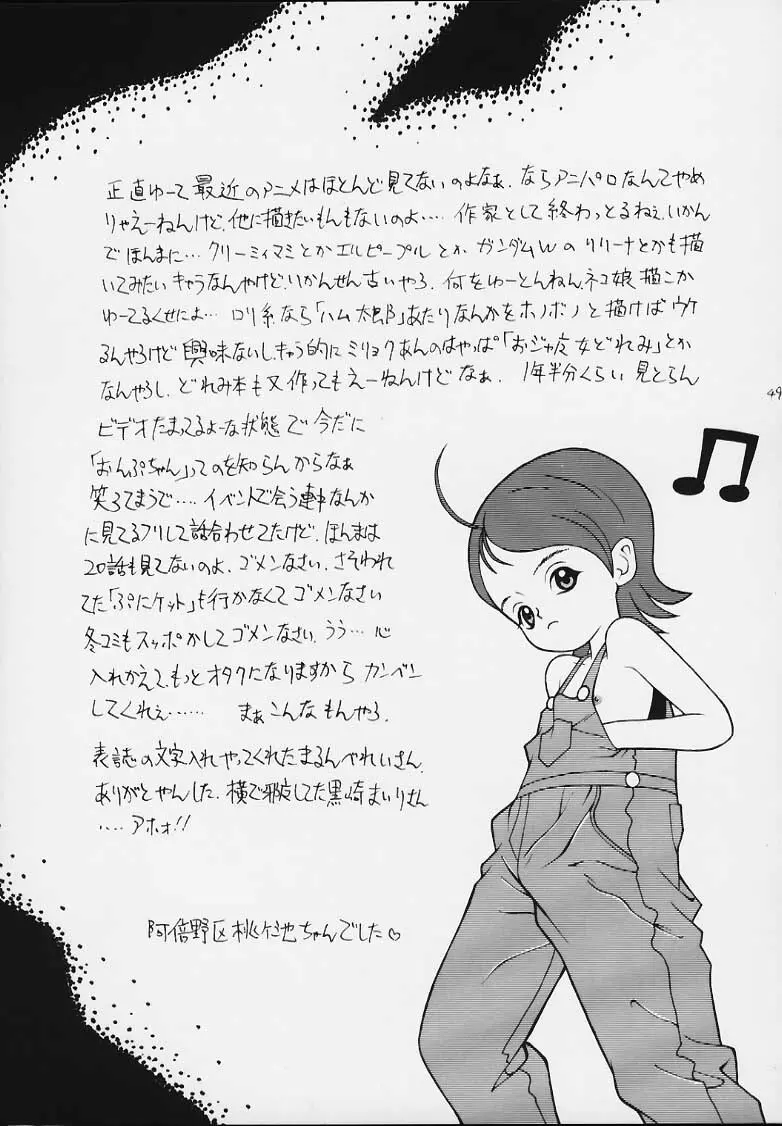 正直ゆーて最近のアニメはほとんど見てないのよなぁ、ならアニパロなんてやめ
りゃえーねんけど、他に描きたいもんもないのよ…. 作家として終わっとるねぇ、いかん
でほんまに… クリーミィマミとかエルピープルとか ガンダムWのリリーナとかも描
いてみたいキャラなんやけど、いかんせん古いやろ. 何をゆーとんねん、ネコ娘描こか
ゆーてるくせによ… ロリ系なら「ハム太郎」あたりなんかをホノボノと描けばウケ
るんやろけど 興味ないし、きゃら的にミリョクあんのはやっぱ「おジャ魔女どれみ」とか
なんやろし、どれみ本も又作ってもえーねんけどなぁ. 1年半分くらい見とらん
49
ビデオたまってるよーな状態で今だに
「おんぷちゃん」ってのを知らんからなぁ
笑ろてまうで…. イベントで会う連中なんか
に見てるフリして話合わせてたけど、ほんまは
20話も見てないのよ、ゴメンなさい、さそわれ
てた「ぷにケット」も行かなくてゴメンなさい
冬コミもスッポかしてゴメンなさい. うう… 心
入れかえて、もっとオタクになりますから カンベン
してくれぇ…… まぁこんなもんやろ.
表誌の文字入れやってくれたまるんべれいさん、
ありがとやんした. 横で邪魔してた黒崎まいりさん
….アホォ!!
阿倍野区桃ヶ池ちゃんでした♡